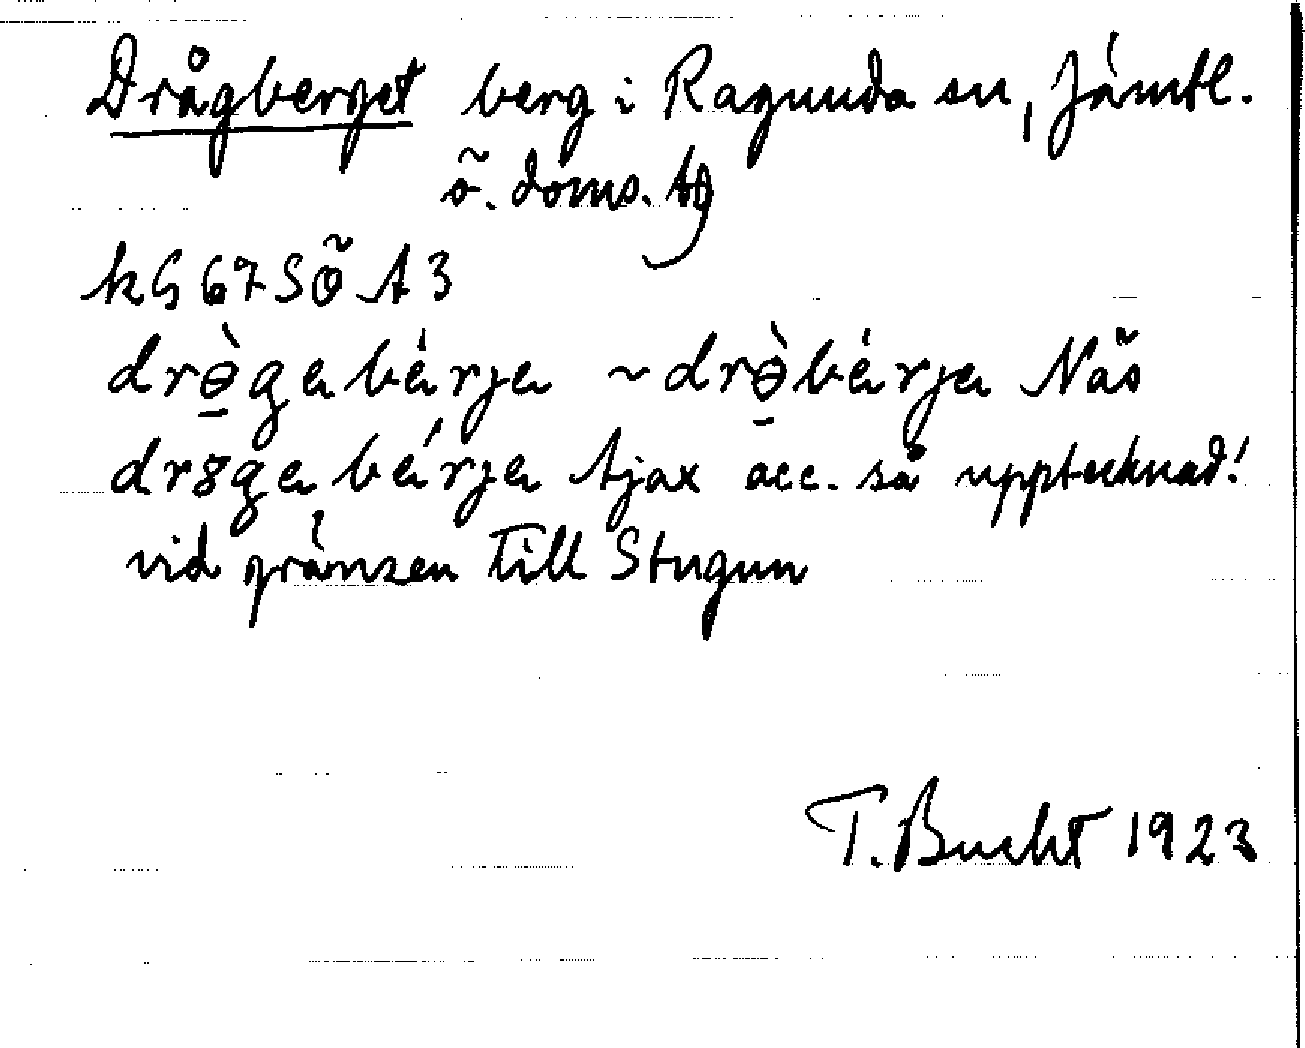 Drågberget berg i Ragunda sn, Jämtl.
ö. doms. tg
kG 67 SÖ A 3
drɵ̀gabárja ~ drɵ̀bárja Näs
dr8gabárja Ajax acc. så upptecknad!
vid gränsen till Stugun
T. Bucht 1923